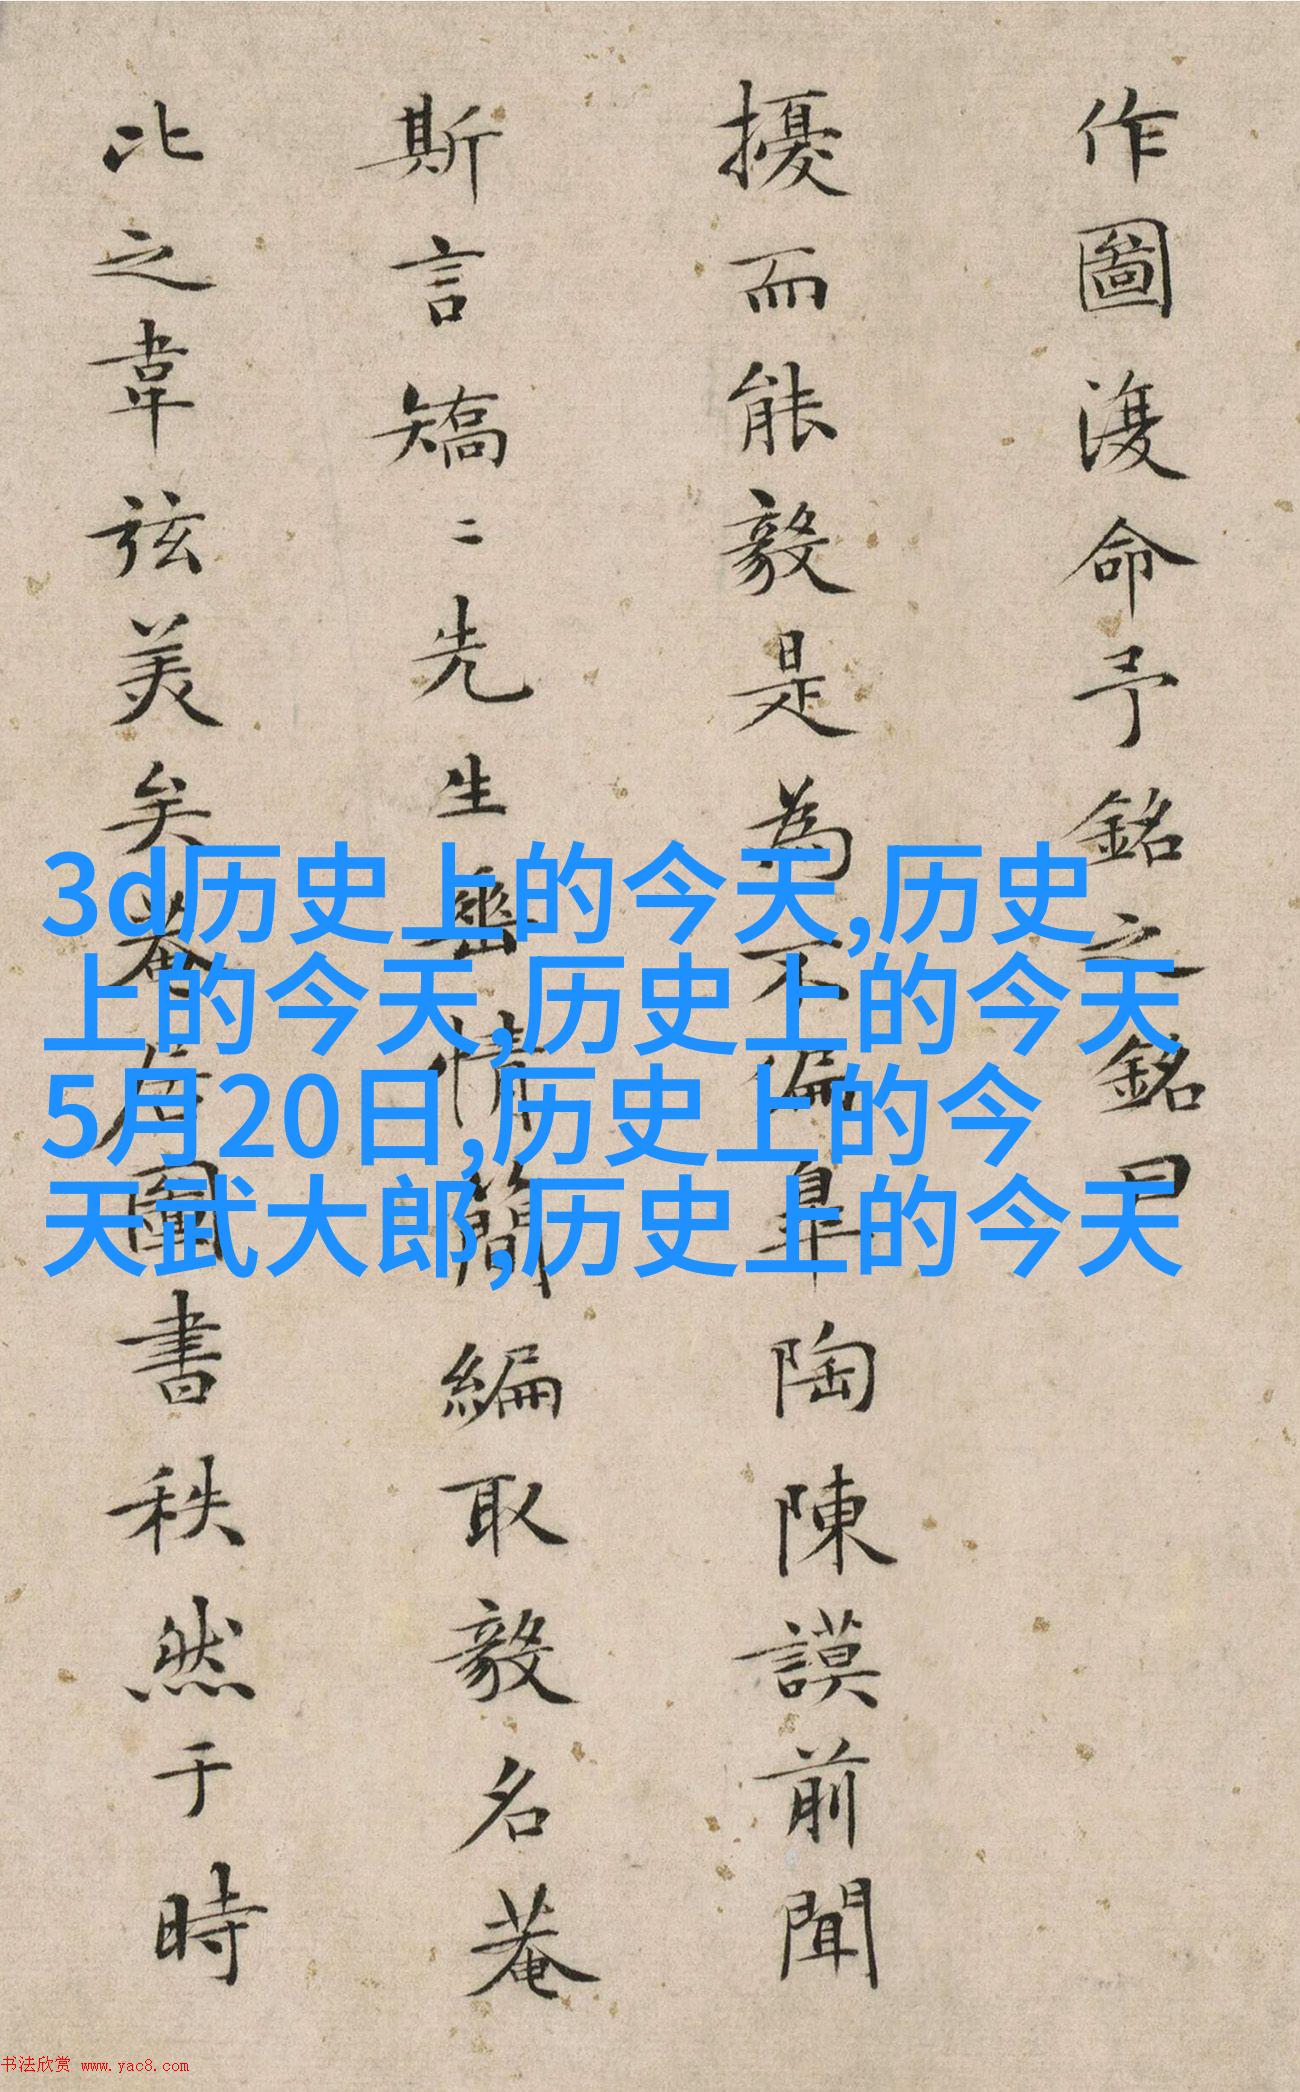 作圖復命予銘之銘曰
擾而能毅是為不偏皐陶陳謨前聞
斯言矯二先生 情簡編取毅名菴
比之韋弦美矣菴居圖書秩然于時
3d历史上的今天,历史
上的今天,历史上的今天
5月20日,历史上的今
天武大郎,历史上的今天
书法欣赏 www.yac8.com